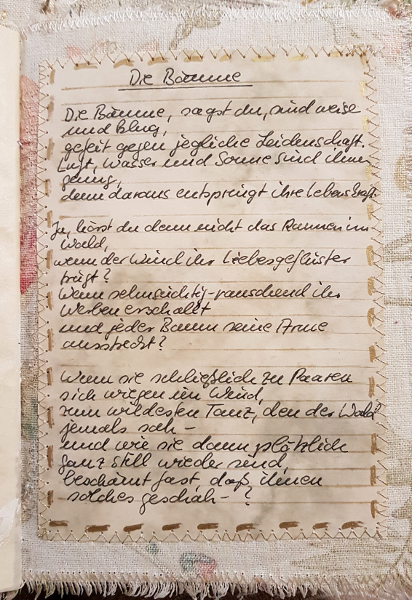 Die Bäume
Die Bäume, sagst du, sind weise
und klug,
gefeit gegen jegliche Leidenschaft.
Luft, Wasser und Sonne sind ihnen
genug,
denn daraus entspringt ihre Lebenskraft.
Ja, hörst du denn nicht das Raunen im
Wald,
wenn der Wind ihr Liebesgeflüster
trägt?
Wenn sehnsüchtig-rauschend ihr
Werben erschallt
und jeder Baum seine Arme
ausstreckt?
Wenn sie schließlich zu Paaren
sich wiegen im Wind,
zum wildesten Tanz, den der Wald
jemals sah –
und wie sie dann plötzlich
ganz still wieder sind,
beschämt fast daß ihnen
solches geschah – ?